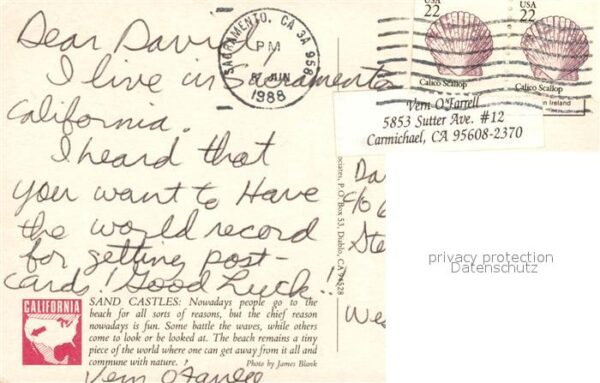 Dear David,
I live in Sacramento
California.
I heard that
you want to Have
the world record
for getting post-
cards! Good Luck!!
Vern O'Farrell
SACRAMENTO, CA 3A 958
PM
JUN
1988
USA
22
Calico Scallop
USA
22
Calico Scallop
n Ireland
Vern O'Farrell
5853 Sutter Ave. #12
Carmichael, CA 95608-2370
ociates, P.O. Box 53, Diablo, CA 94528
Da
c/o
Ste
We
privacy protection
Datenschutz
CALIFORNIA
SAND CASTLES: Nowadays people go to the
beach for all sorts of reasons, but the chief reason
nowadays is fun. Some battle the waves, while others
come to look or be looked at. The beach remains a tiny
piece of the world where one can get away from it all and
commune with nature.
Photo by James Blank